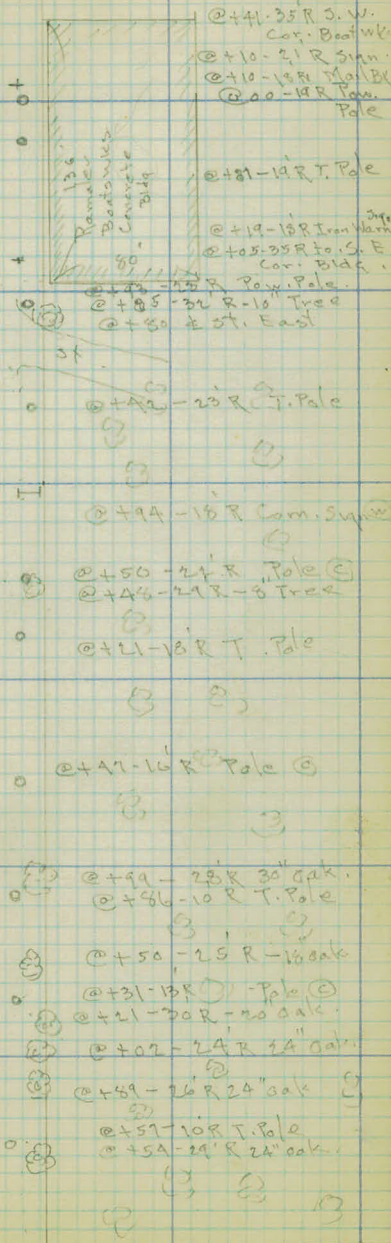 @+41-35'R S.W.
Cor. Boatwk
@+10-21 R Sign
@+10-18R Mail Bx
@00-19R Pow.
Pole
136'
Boatwks
Concrete
Bldg
80'
@+81-19'R T. Pole
@+19-18'R Iron Warn
@+05-35R to S.E.
Cor. Bldg.
@+93-25'R Pow. Pole
@+85-32'R-10" Tree
@+80 ⅊ St. East
St
@+42-23'R T. Pole
@+94-18'R Com. Sign W
@+50-21'R Pole C
@+48-29R-8 Tree
@+21-18'R T. Pole
@+47-16'R Pole C
@+99-28'R 30" oak.
@+86-10'R T. Pole
@+50-25'R-18 oak
@+31-13R -Pole C
@+21-30R-20 oak.
@+02-24'R 24" oak.
@+89-26'R 24" oak
@+57-10R T. Pole
@+54-29'R 24" oak.